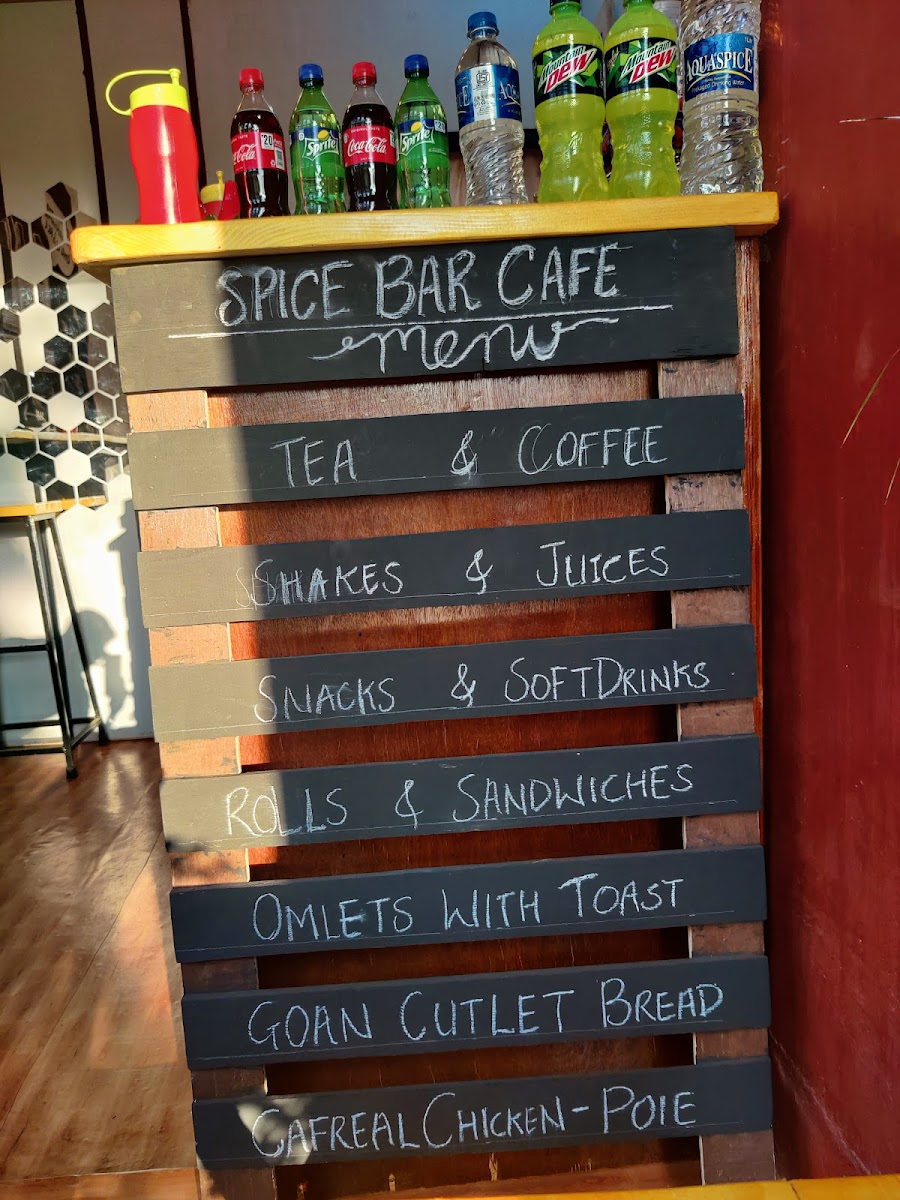 ₹20
Coca-Cola
Sprite
Coca-Cola
Sprite
Mountain
DEW
Mountain
DEW
AQUASPICE
Packaged Drinking Water
SPICE BAR CAFE
menu
TEA & COFFEE
SHAKES & JUICES
SNACKS & SOFTDRINKS
ROLLS & SANDWICHES
OMLETS WITH TOAST
GOAN CUTLET BREAD
CAFREAL CHICKEN-POIE